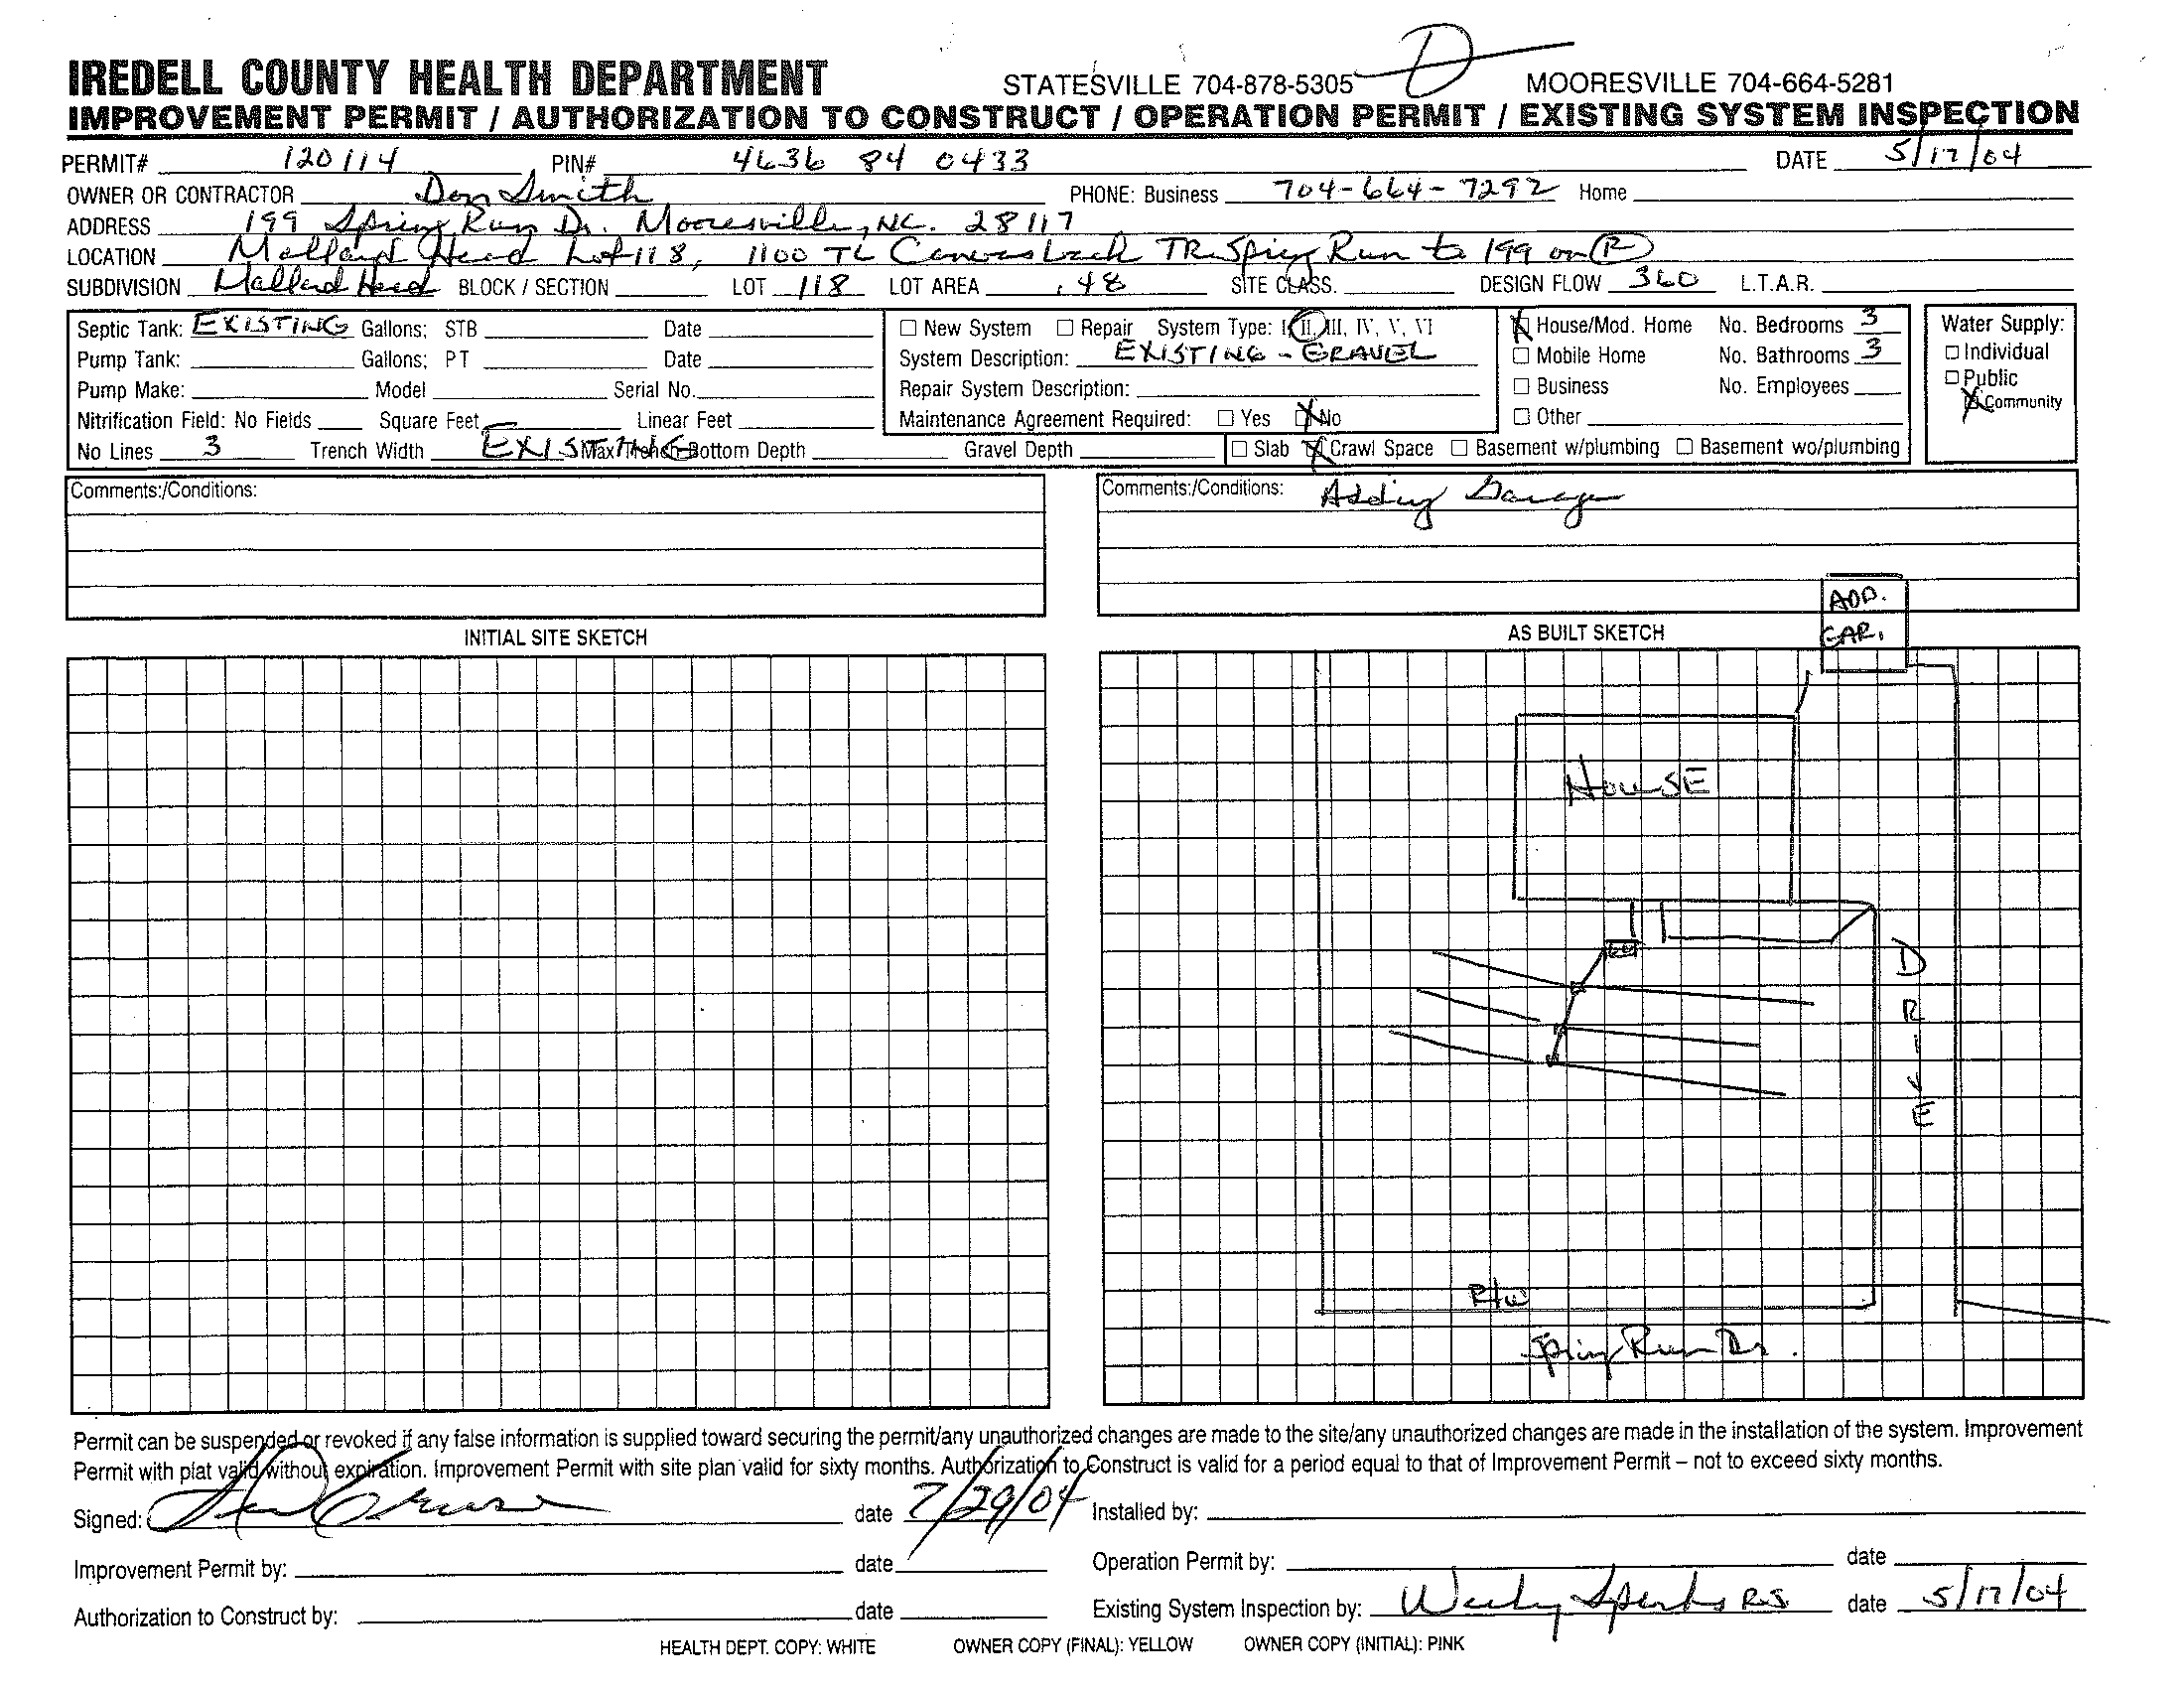 IREDELL COUNTY HEALTH DEPARTMENT STATESVILLE 704-878-5305 D MOORESVILLE 704-664-5281
IMPROVEMENT PERMIT / AUTHORIZATION TO CONSTRUCT / OPERATION PERMIT / EXISTING SYSTEM INSPECTION
PERMIT# 120114 PIN# 4636 84 0433 DATE 5/17/04
OWNER OR CONTRACTOR Don Smith PHONE: Business 704-664-7292 Home
ADDRESS 199 Spring Run Dr. Mooresville, NC. 28117
LOCATION Mallard Head Lot 118, 1100 TL Canvasback TR Spring Run to 199 on R
SUBDIVISION Mallard Head BLOCK / SECTION LOT 118 LOT AREA .48 SITE CLASS. DESIGN FLOW 360 L.T.A.R.
Septic Tank: EXISTING Gallons; STB Date New System Repair System Type: I, II, III, IV, V, VI House/Mod. Home No. Bedrooms 3 Water Supply:
Pump Tank: Gallons; PT Date System Description: EXISTING - GRAVEL Mobile Home No. Bathrooms 3 Individual
Pump Make: Model Serial No. Repair System Description: Business No. Employees Public
Nitrification Field: No Fields Square Feet Linear Feet Maintenance Agreement Required: Yes No Other Community
No Lines 3 Trench Width EXISTING Max Trench Bottom Depth Gravel Depth Slab Crawl Space Basement w/plumbing Basement wo/plumbing
Comments:/Conditions: Comments:/Conditions: Adding Garage
ADD.
GAR.
INITIAL SITE SKETCH AS BUILT SKETCH
HOUSE
D
R
I
V
E
R/W
Spring Run Dr.
Permit can be suspended or revoked if any false information is supplied toward securing the permit/any unauthorized changes are made to the site/any unauthorized changes are made in the installation of the system. Improvement
Permit with plat valid without expiration. Improvement Permit with site plan valid for sixty months. Authorization to Construct is valid for a period equal to that of Improvement Permit – not to exceed sixty months.
Signed: date 7/29/04 Installed by:
Improvement Permit by: date Operation Permit by: date
Authorization to Construct by: date Existing System Inspection by: Wesley Sparks RS date 5/17/04
HEALTH DEPT. COPY: WHITE OWNER COPY (FINAL): YELLOW OWNER COPY (INITIAL): PINK